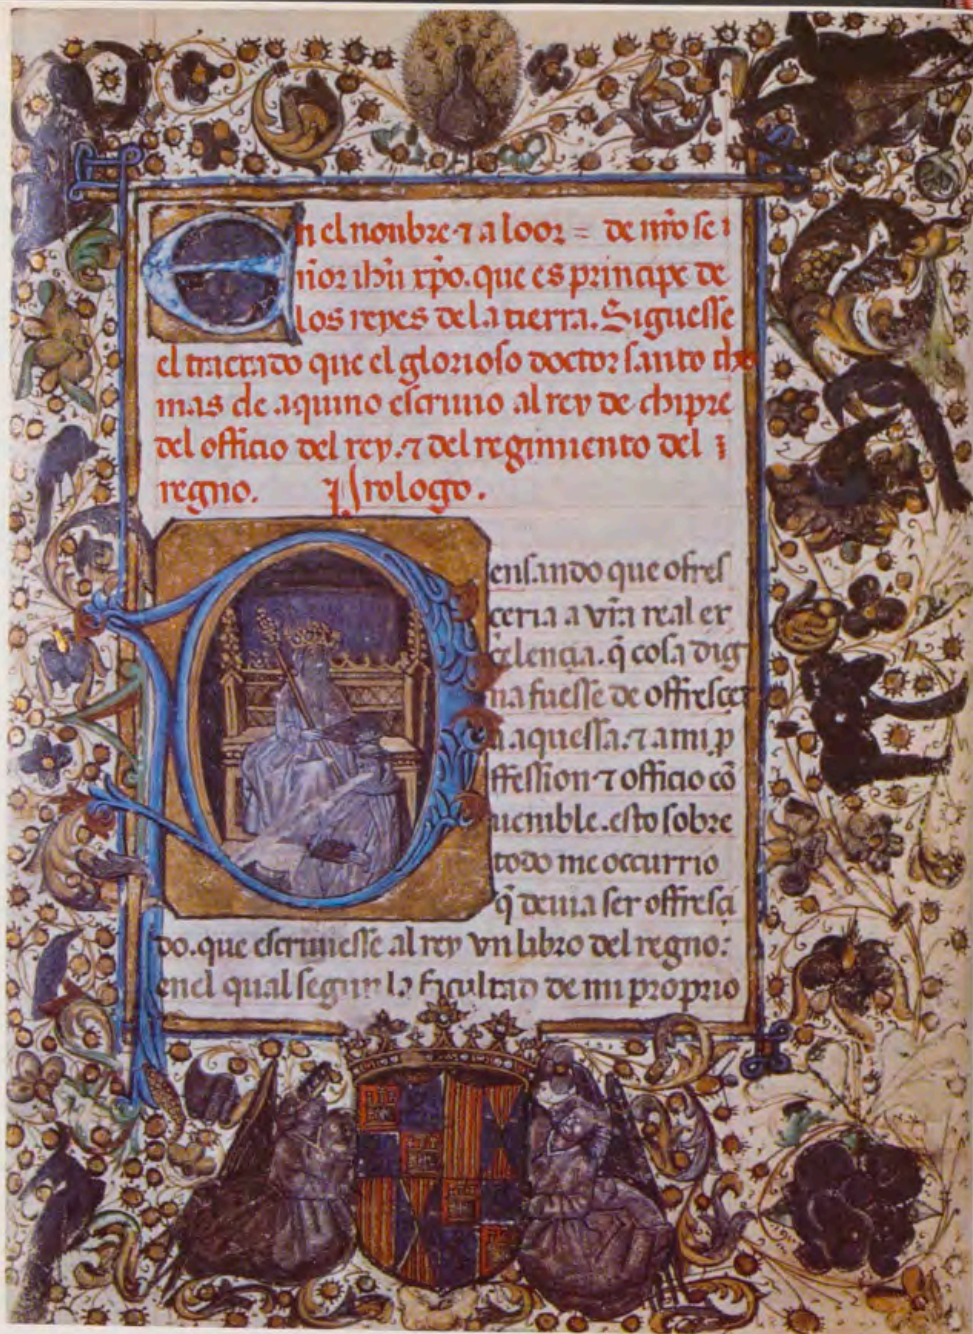 En el nonbre ⁊ a loor = de nr̃o se ı
ñor ihũ xp̃o. que es principe de
los reyes de la tierra. Siguesse
el tractado que el glorioso doctor santo tho
mas de aquino escriuio al rey de chipre
del officio del rey. ⁊ del regimiento del ı
regno. Prologo.
Pensando que ofres
ceria a vr̃a real ex
çelençia. q̃ cosa dig
na fuesse de offresçer
a aquessa. ⁊ a mi p̱
ffession ⁊ officio cõ
uenible. esto sobre
todo me occurrio
q̃ deuia ser offresçi
do. que escriuiesse al rey vn libro del regno:
enel qual segun la facultad de mi proprio